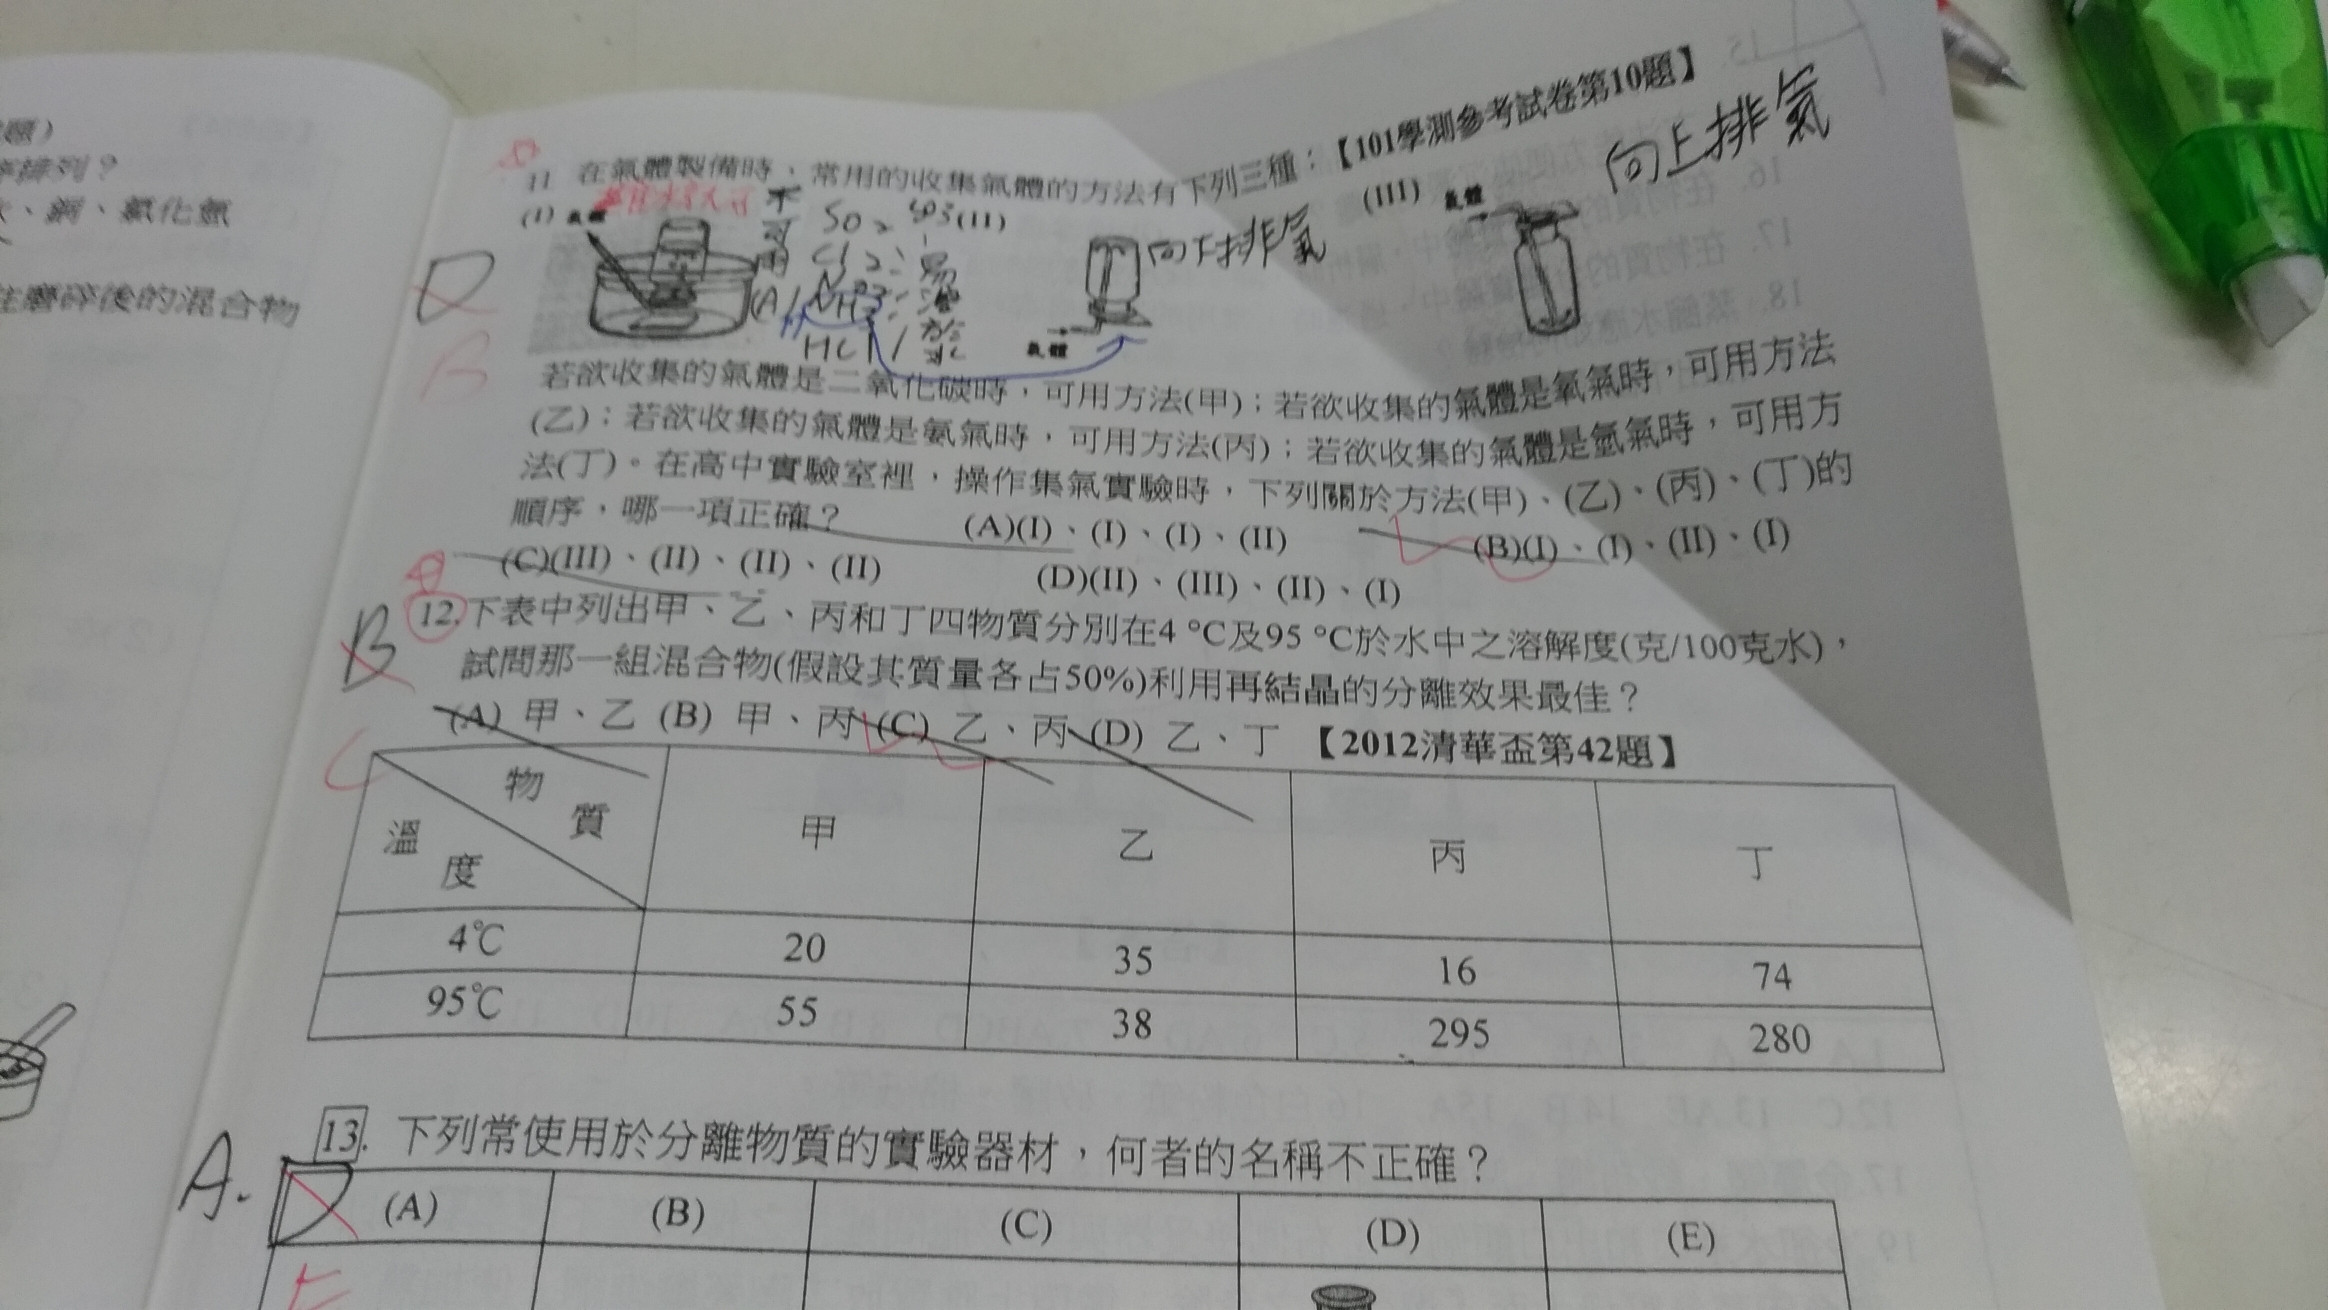 題)
排列?
、銅、氯化氫
磨碎後的混合物
11 在氣體製備時,常用的收集氣體的方法有下列三種:【101學測參考試卷第10題】
向上排氣
(I) 氣體
不可用
SO2
Cl2
NO2
NH3
HCl
易溶於水
(A)
(II)
氣體
向下排氣
(III) 氣體
若欲收集的氣體是二氧化碳時,可用方法(甲);若欲收集的氣體是氧氣時,可用方法
(乙);若欲收集的氣體是氨氣時,可用方法(丙);若欲收集的氣體是氫氣時,可用方
法(丁)。在高中實驗室裡,操作集氣實驗時,下列關於方法(甲)、(乙)、(丙)、(丁)的
順序,哪一項正確? (A)(I)、(I)、(I)、(II) (B)(I)、(I)、(II)、(I)
(C)(III)、(II)、(II)、(II) (D)(II)、(III)、(II)、(I)
D
B
B
12.下表中列出甲、乙、丙和丁四物質分別在4 °C及95 °C於水中之溶解度(克/100克水),
試問那一組混合物(假設其質量各占50%)利用再結晶的分離效果最佳?
(A) 甲、乙 (B) 甲、丙 (C) 乙、丙 (D) 乙、丁 【2012清華盃第42題】
C
物質 溫度 甲 乙 丙 丁
4℃ 20 35 16 74
95℃ 55 38 295 280
13. 下列常使用於分離物質的實驗器材,何者的名稱不正確?
A. D
(A) (B) (C) (D) (E)
E